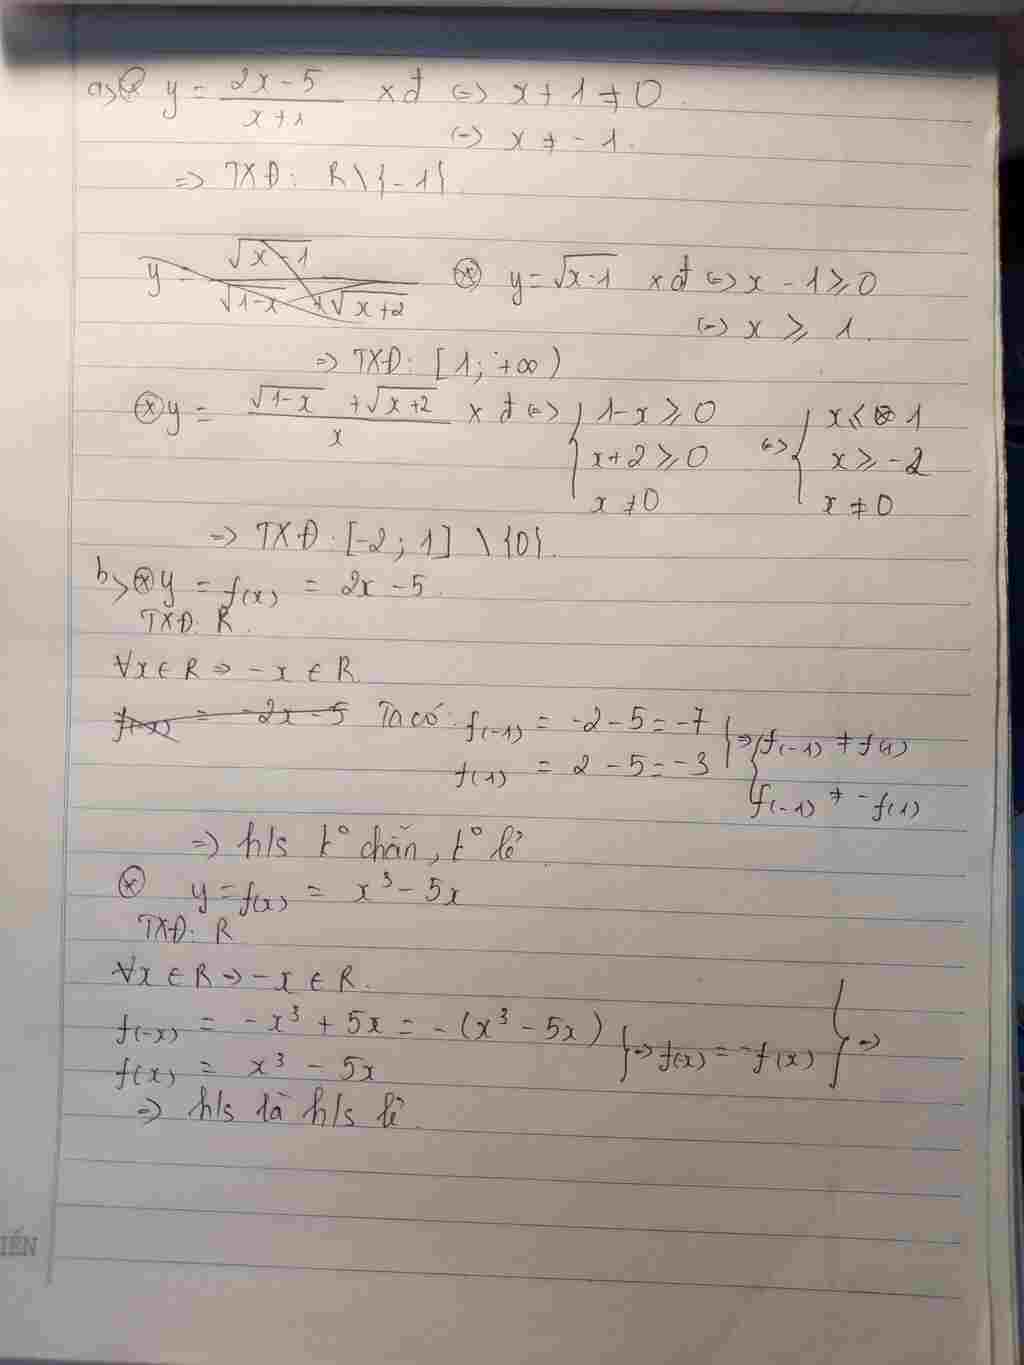 a, ⊛ y = (2x - 5)/(x + 1) xđ ⇔ x + 1 ≠ 0.
⇔ x ≠ -1.
⇒ TXĐ: R \ {-1}.
y = √(x - 1)/(√(1-x) + √(x+2)) ⊛ y = √(x-1) xđ ⇔ x - 1 ≥ 0
⇔ x ≥ 1.
⇒ TXĐ: [1; +∞)
⊛ y = (√(1-x) + √(x+2))/x xđ ⇔ { 1-x ≥ 0 ⇔ { x ≤ 1
x+2 ≥ 0 x ≥ -2
x ≠ 0 x ≠ 0
⇒ TXĐ: [-2; 1] \ {0}.
b, ⊛ y = f(x) = 2x - 5.
TXĐ: R.
∀x ∈ R ⇒ -x ∈ R
f(-x) = -2x - 5 Ta có: f(-1) = -2 - 5 = -7 } ⇒ { f(-1) ≠ f(1)
f(1) = 2 - 5 = -3 f(-1) ≠ -f(1)
⇒ h/s k° chẵn, k° lẻ.
⊛ y = f(x) = x³ - 5x
TXĐ: R
∀x ∈ R ⇒ -x ∈ R.
f(-x) = -x³ + 5x = -(x³ - 5x) } ⇒ f(x) = -f(x) } ⇒
f(x) = x³ - 5x
⇒ h/s là h/s lẻ.
IẾN